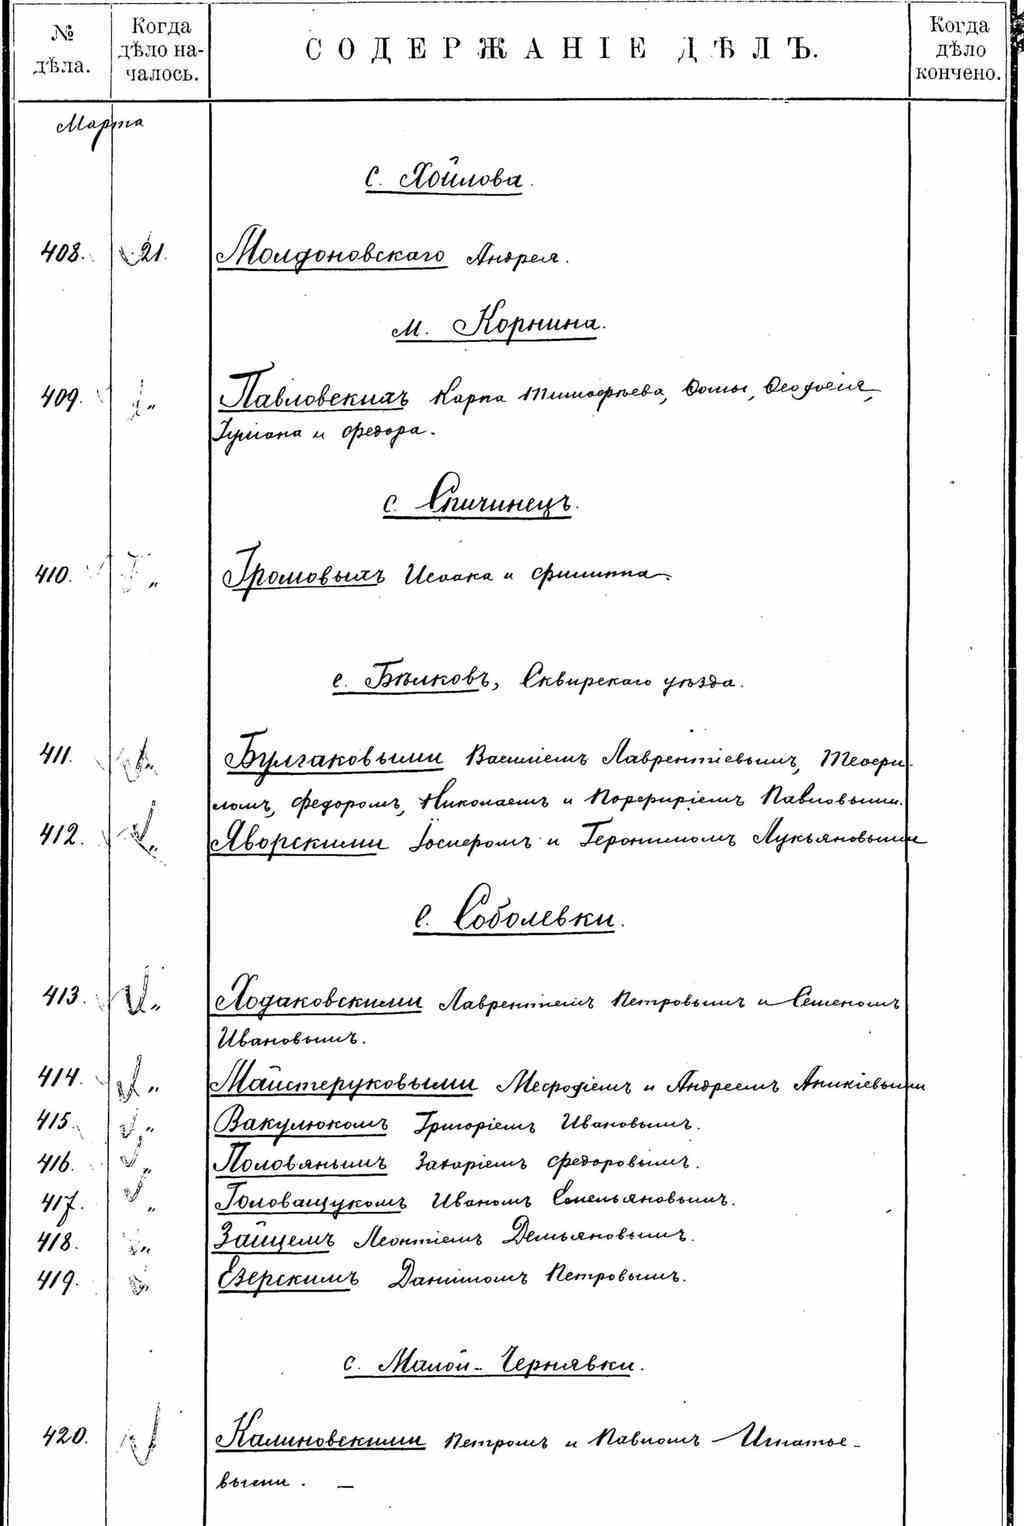 № дѣла. Когда дѣло на-чалось. СОДЕРЖАНІЕ ДѢЛЪ. Когда дѣло кончено.
Марта
с. Хойлова.
408. 21. Молдоновскаго Андрея.
м. Корнина.
409. „ Павловскихъ Карпа Тимофѣева, Фомы, Феодосія,
Гуліана и Федора.
с. Спичинецъ.
410. „ Громовыхъ Исаака и Филиппа.
с. Бѣлковъ, Сквирскаго уѣзда.
411. „ Булгаковыми Василіемъ Лаврентіевымъ, Теофи-
ломъ, Федоромъ, Николаемъ и Порфиріемъ Павловыми.
412. „ Яворскими Іосифомъ и Геронимомъ Лукьяновыми
с. Соболевки.
413. „ Ходаковскими Лаврентіемъ Петровымъ и Семеномъ
Ивановымъ.
414. „ Майстеруковыми Мефодіемъ и Андреемъ Аникіевыми
415. „ Вакулюкомъ Григоріемъ Ивановымъ.
416. „ Половянымъ Захаріемъ Федоровымъ.
417. „ Головащукомъ Иваномъ Емельяновымъ.
418. „ Зайцемъ Леонтіемъ Демьяновымъ.
419. „ Езерскимъ Даніиломъ Петровымъ.
с. Малой-Чернявки.
420. Калиновскими Петромъ и Павломъ Игнатье-
выми. —